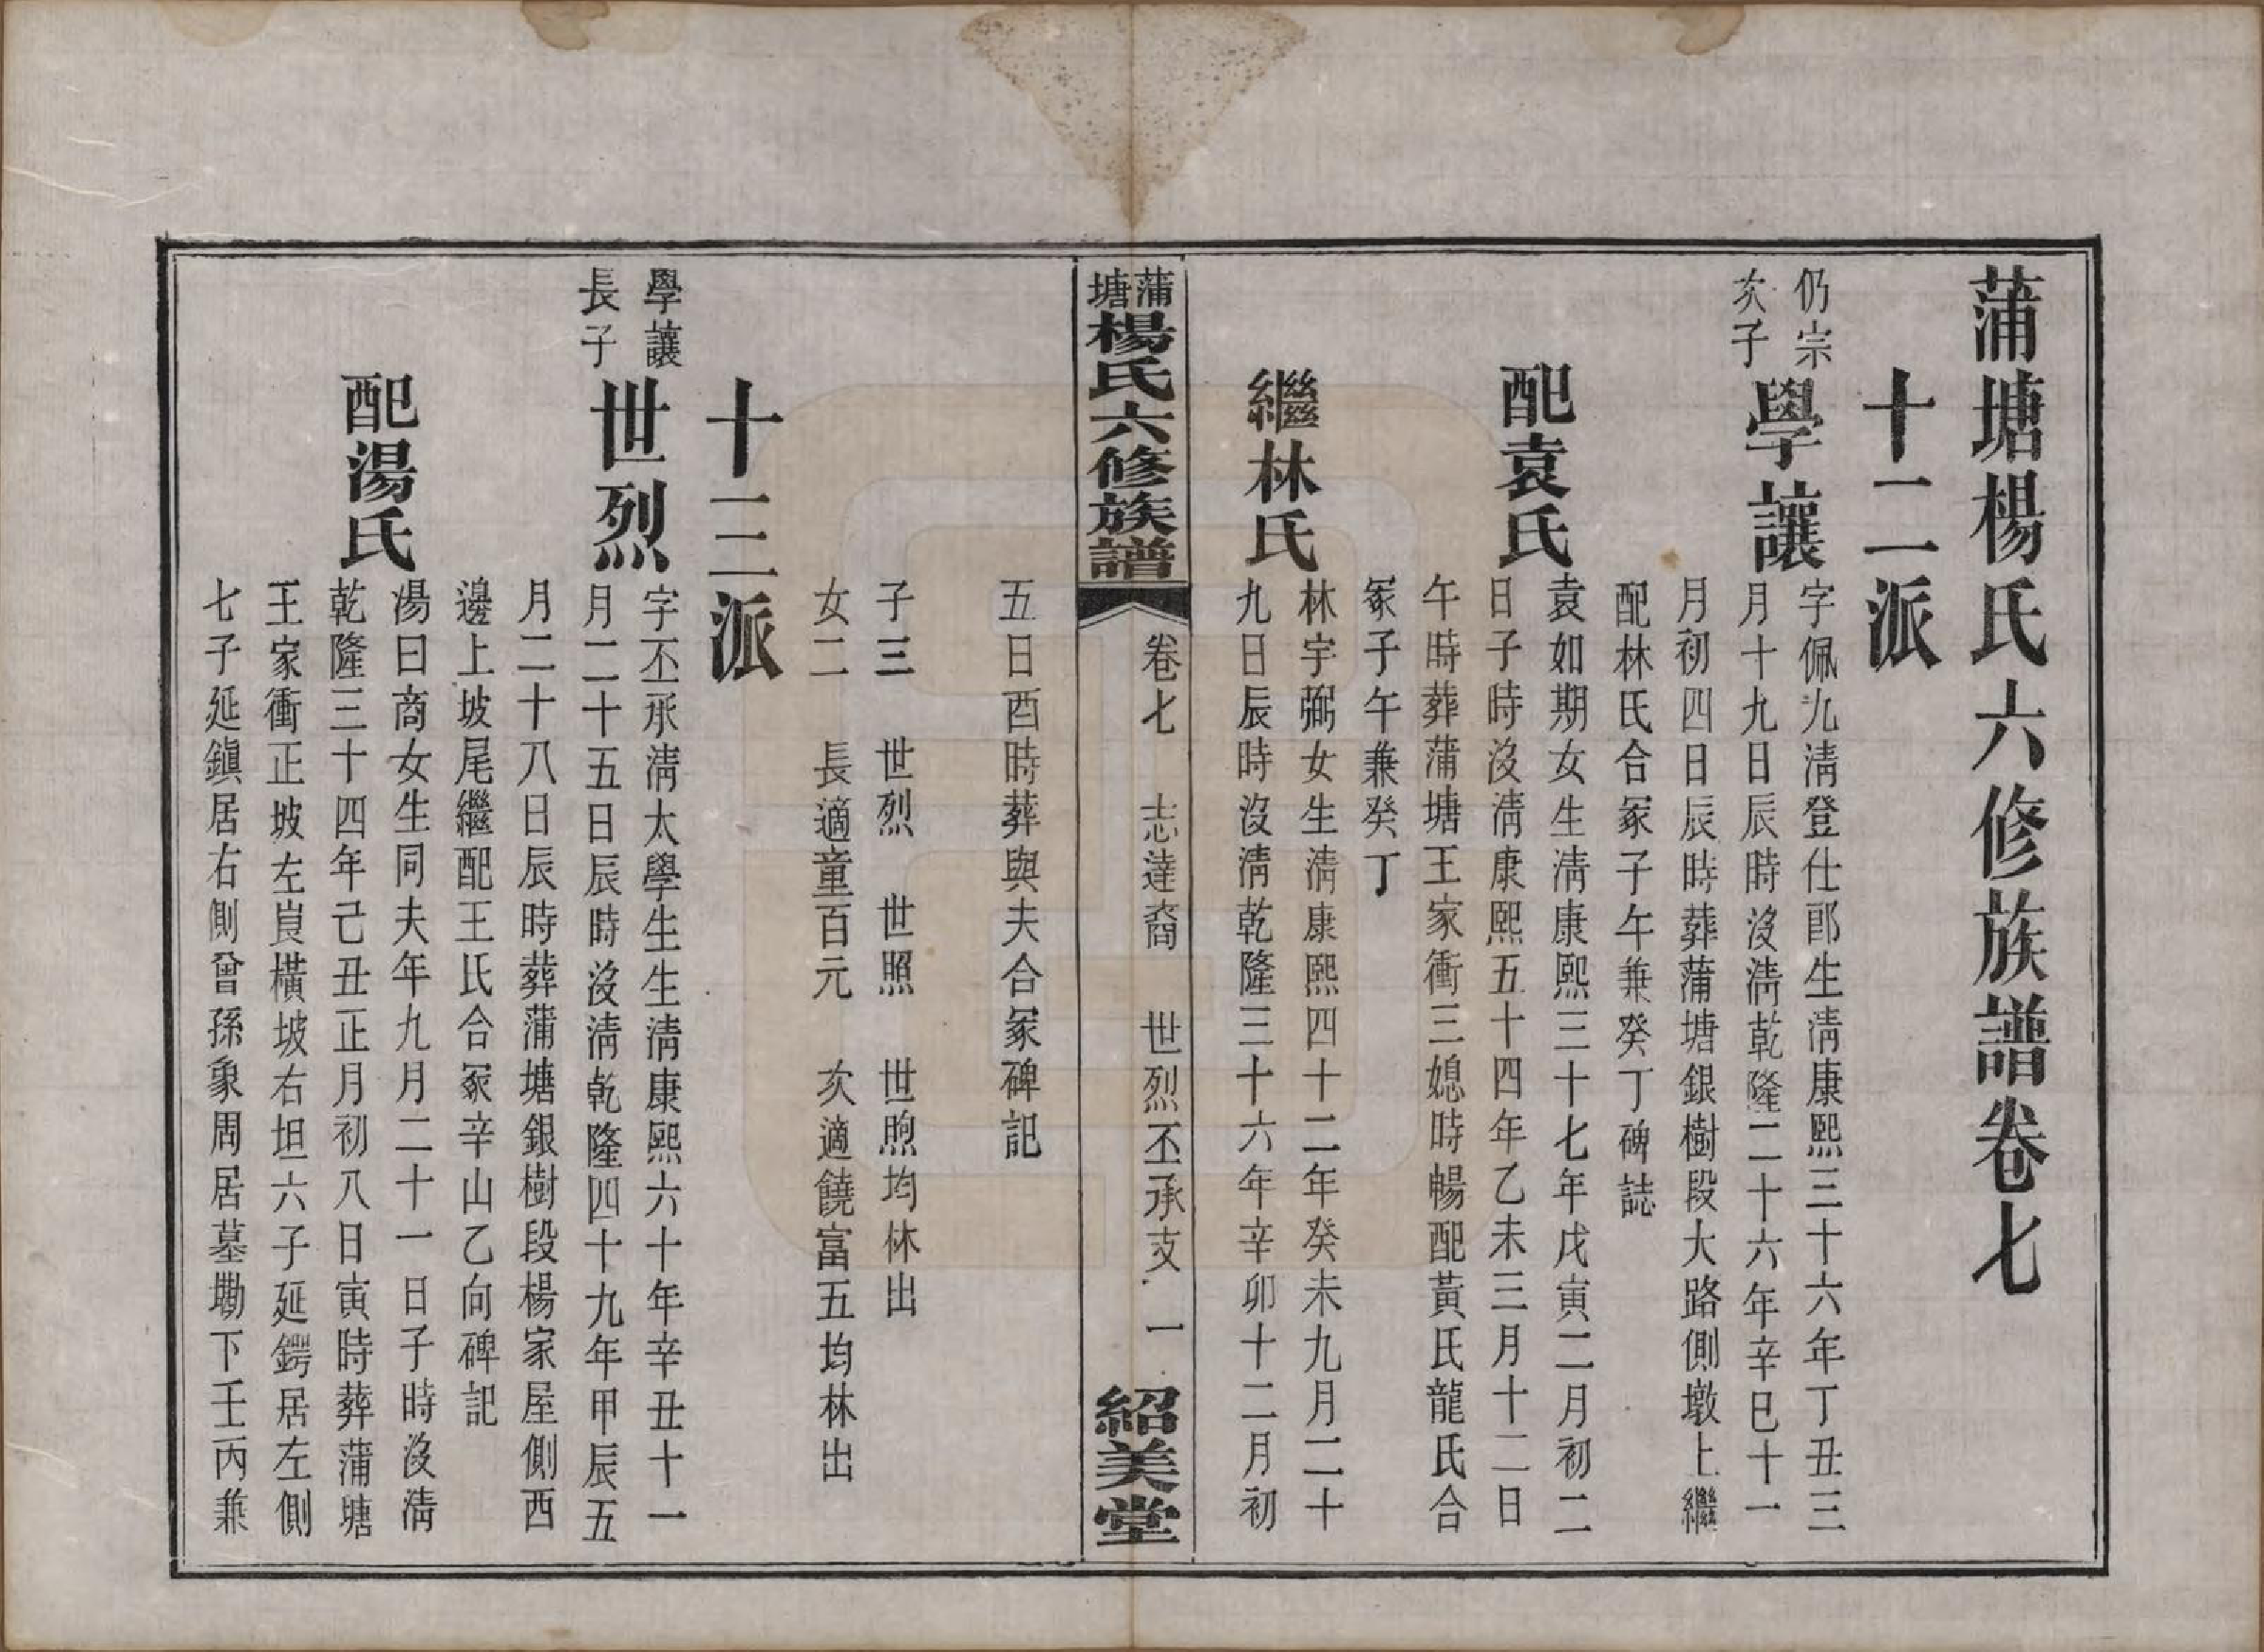 蒲塘楊氏六修族譜卷七
十二派
仍宗
次子
學讓
字佩九清登仕郎生清康熙三十六年丁丑三
月十九日辰時沒清乾隆二十六年辛巳十一
月初四日辰時葬蒲塘銀樹段大路側墩上繼
配林氏合冢子午兼癸丁碑誌
配袁氏
袁如期女生清康熙三十七年戊寅二月初二
日子時沒清康熙五十四年乙未三月十二日
午時葬蒲塘王家衝三媳時暢配黃氏龍氏合
冢子午兼癸丁
繼林氏
林宇弼女生清康熙四十二年癸未九月二十
九日辰時沒清乾隆三十六年辛卯十二月初
蒲塘楊氏六修族譜
卷七 志達裔 世烈丕承支 一
紹美堂
五日酉時葬與夫合冢碑記
子三 世烈 世照 世煦均林出
女二 長適童百元 次適饒富五均林出
十三派
學讓
長子
世烈
字丕承清太學生生清康熙六十年辛丑十一
月二十五日辰時沒清乾隆四十九年甲辰五
月二十八日辰時葬蒲塘銀樹段楊家屋側西
邊上坡尾繼配王氏合冢辛山乙向碑記
配湯氏
湯曰商女生同夫年九月二十一日子時沒清
乾隆三十四年己丑正月初八日寅時葬蒲塘
王家衝正坡左峎橫坡右坦六子延鍔居左側
七子延鎮居右側曾孫象周居墓塝下壬丙兼